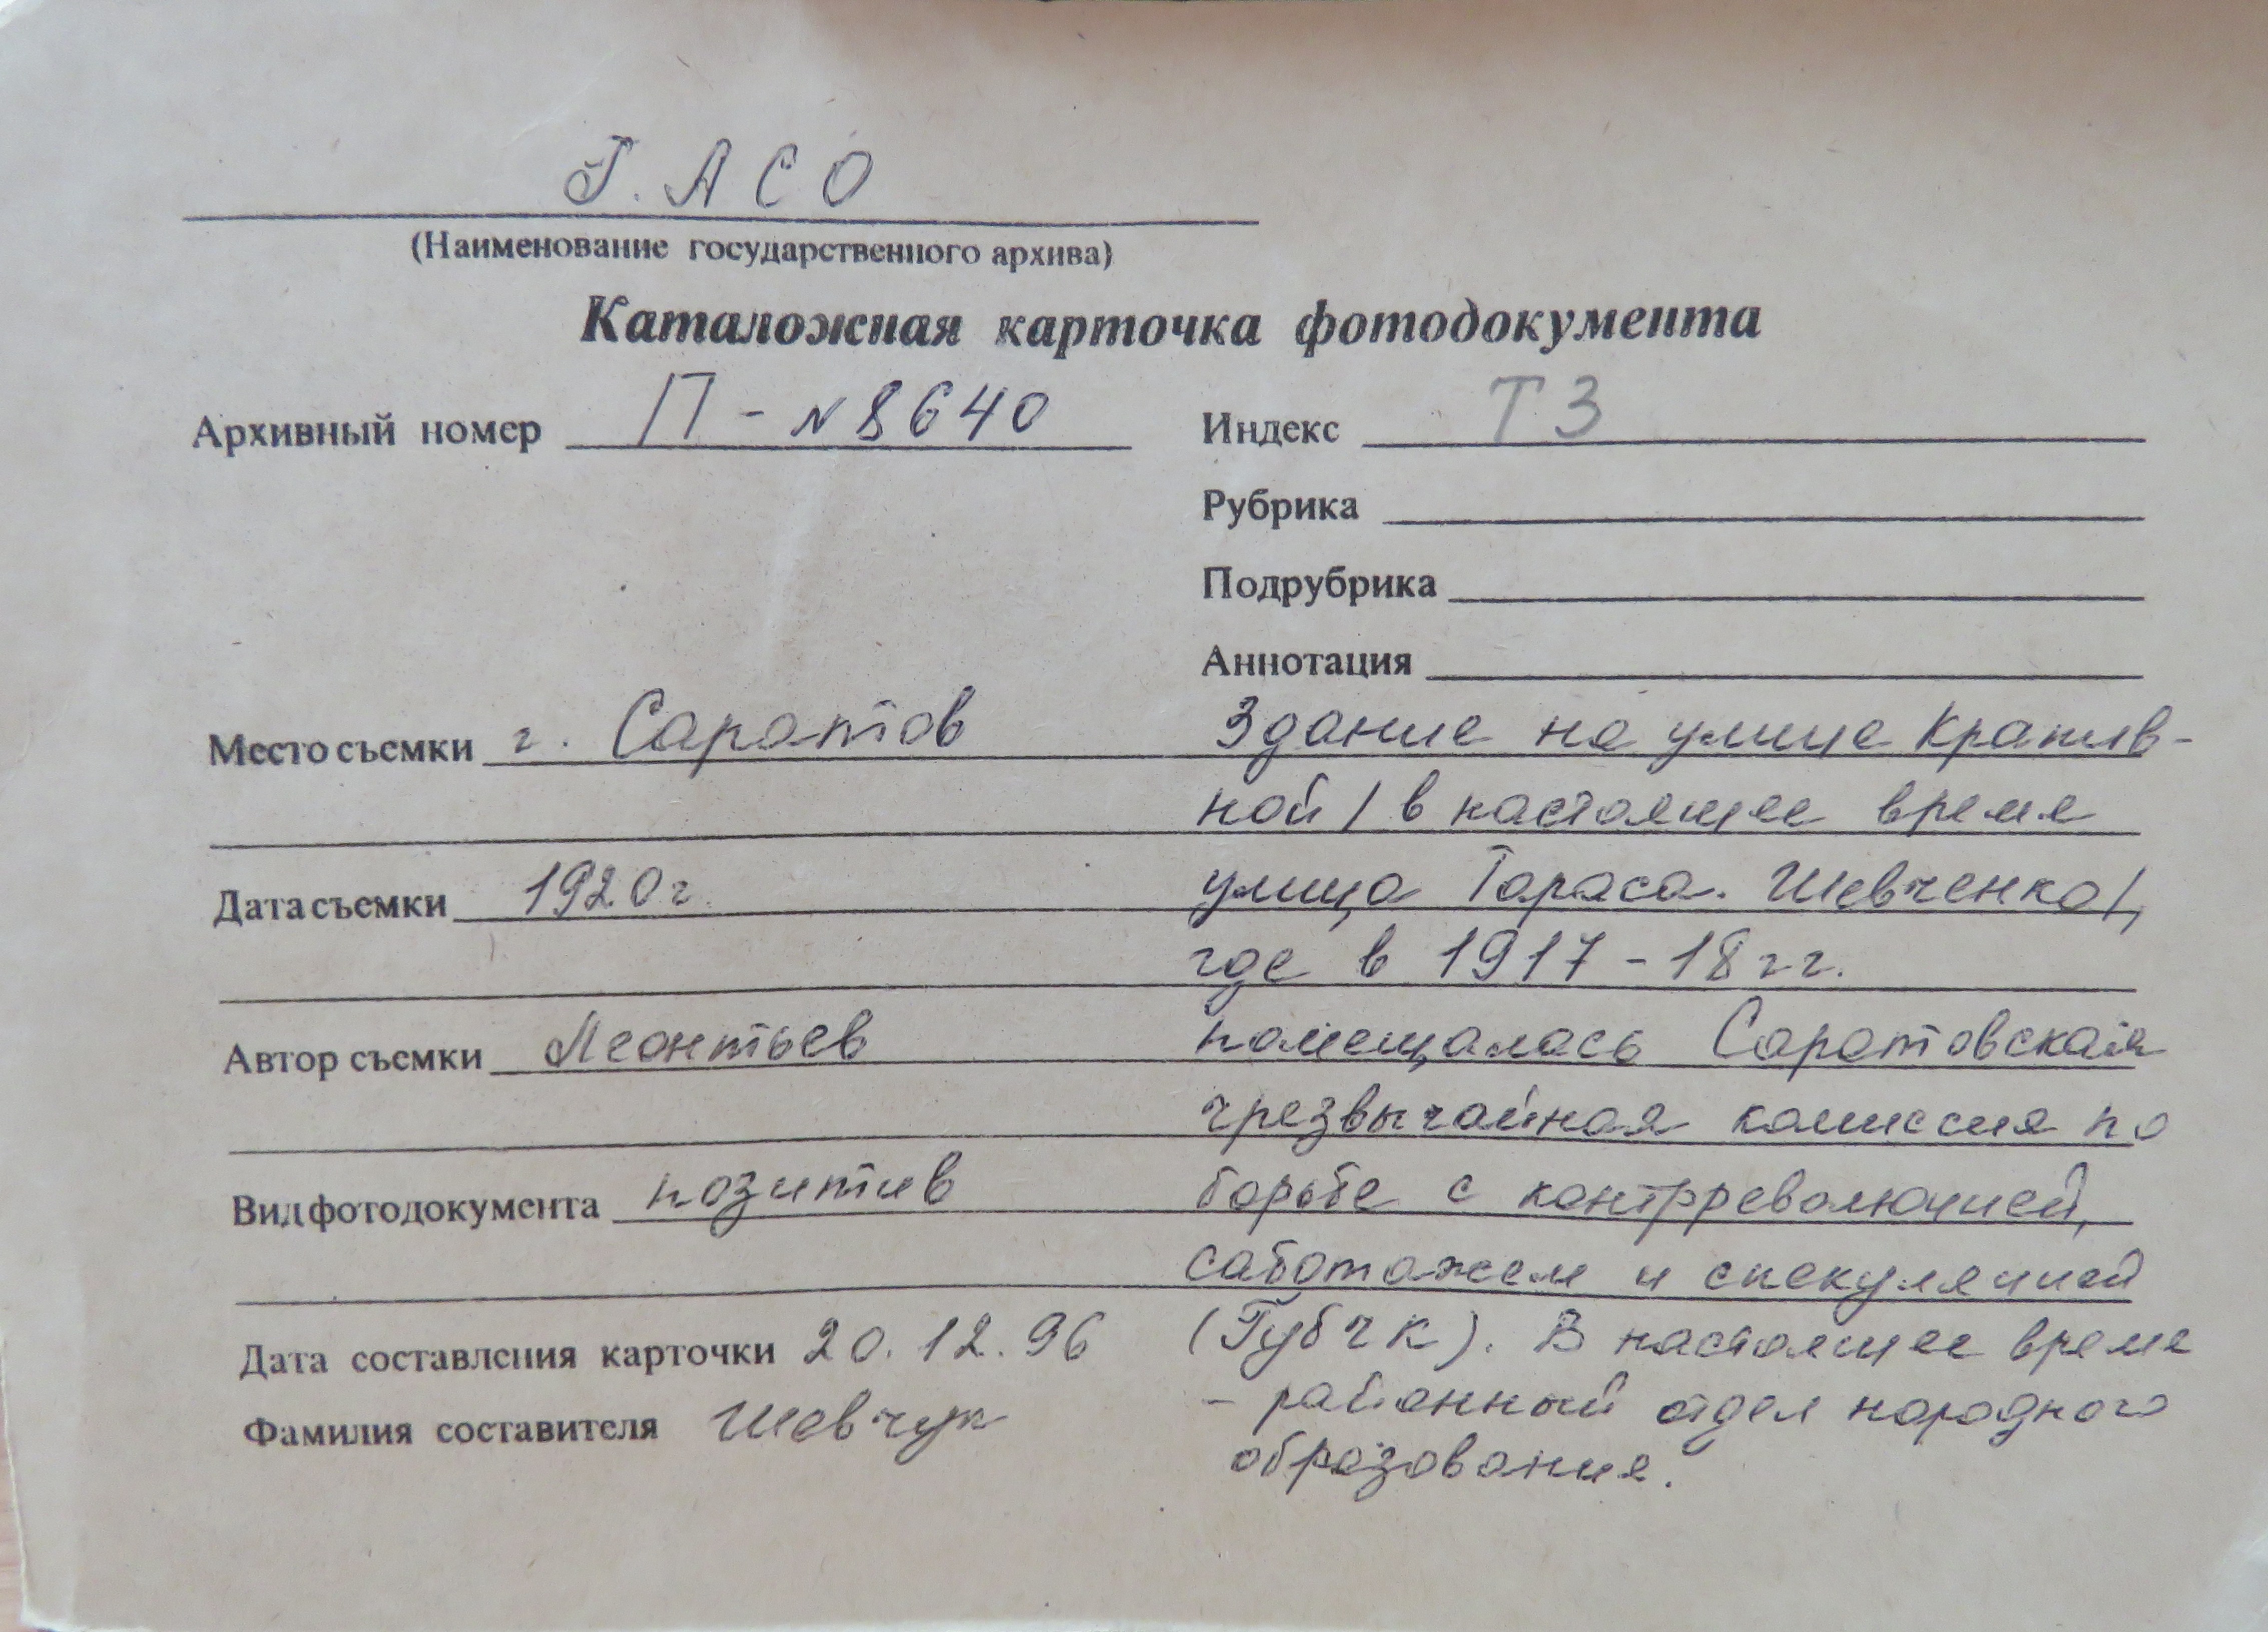 Г. А С О
(Наименование государственного архива)
Каталожная карточка фотодокумента
Архивный номер П - N 8640
Индекс Т 3
Рубрика
Подрубрика
Аннотация
Место съемки г. Саратов
Дата съемки 1920 г.
Автор съемки Леонтьев
Вид фотодокумента позитив
Дата составления карточки 20.12.96
Фамилия составителя Шевчук
Здание на улице Крапив-
ной / в настоящее время
улица Тараса. Шевченко/,
где в 1917 - 18 г.г.
помещалась Саратовская
чрезвычайная комиссия по
борьбе с контрреволюцией,
саботажем и спекуляцией
(ГубЧК). В настоящее время
- районный отдел народного
образования.